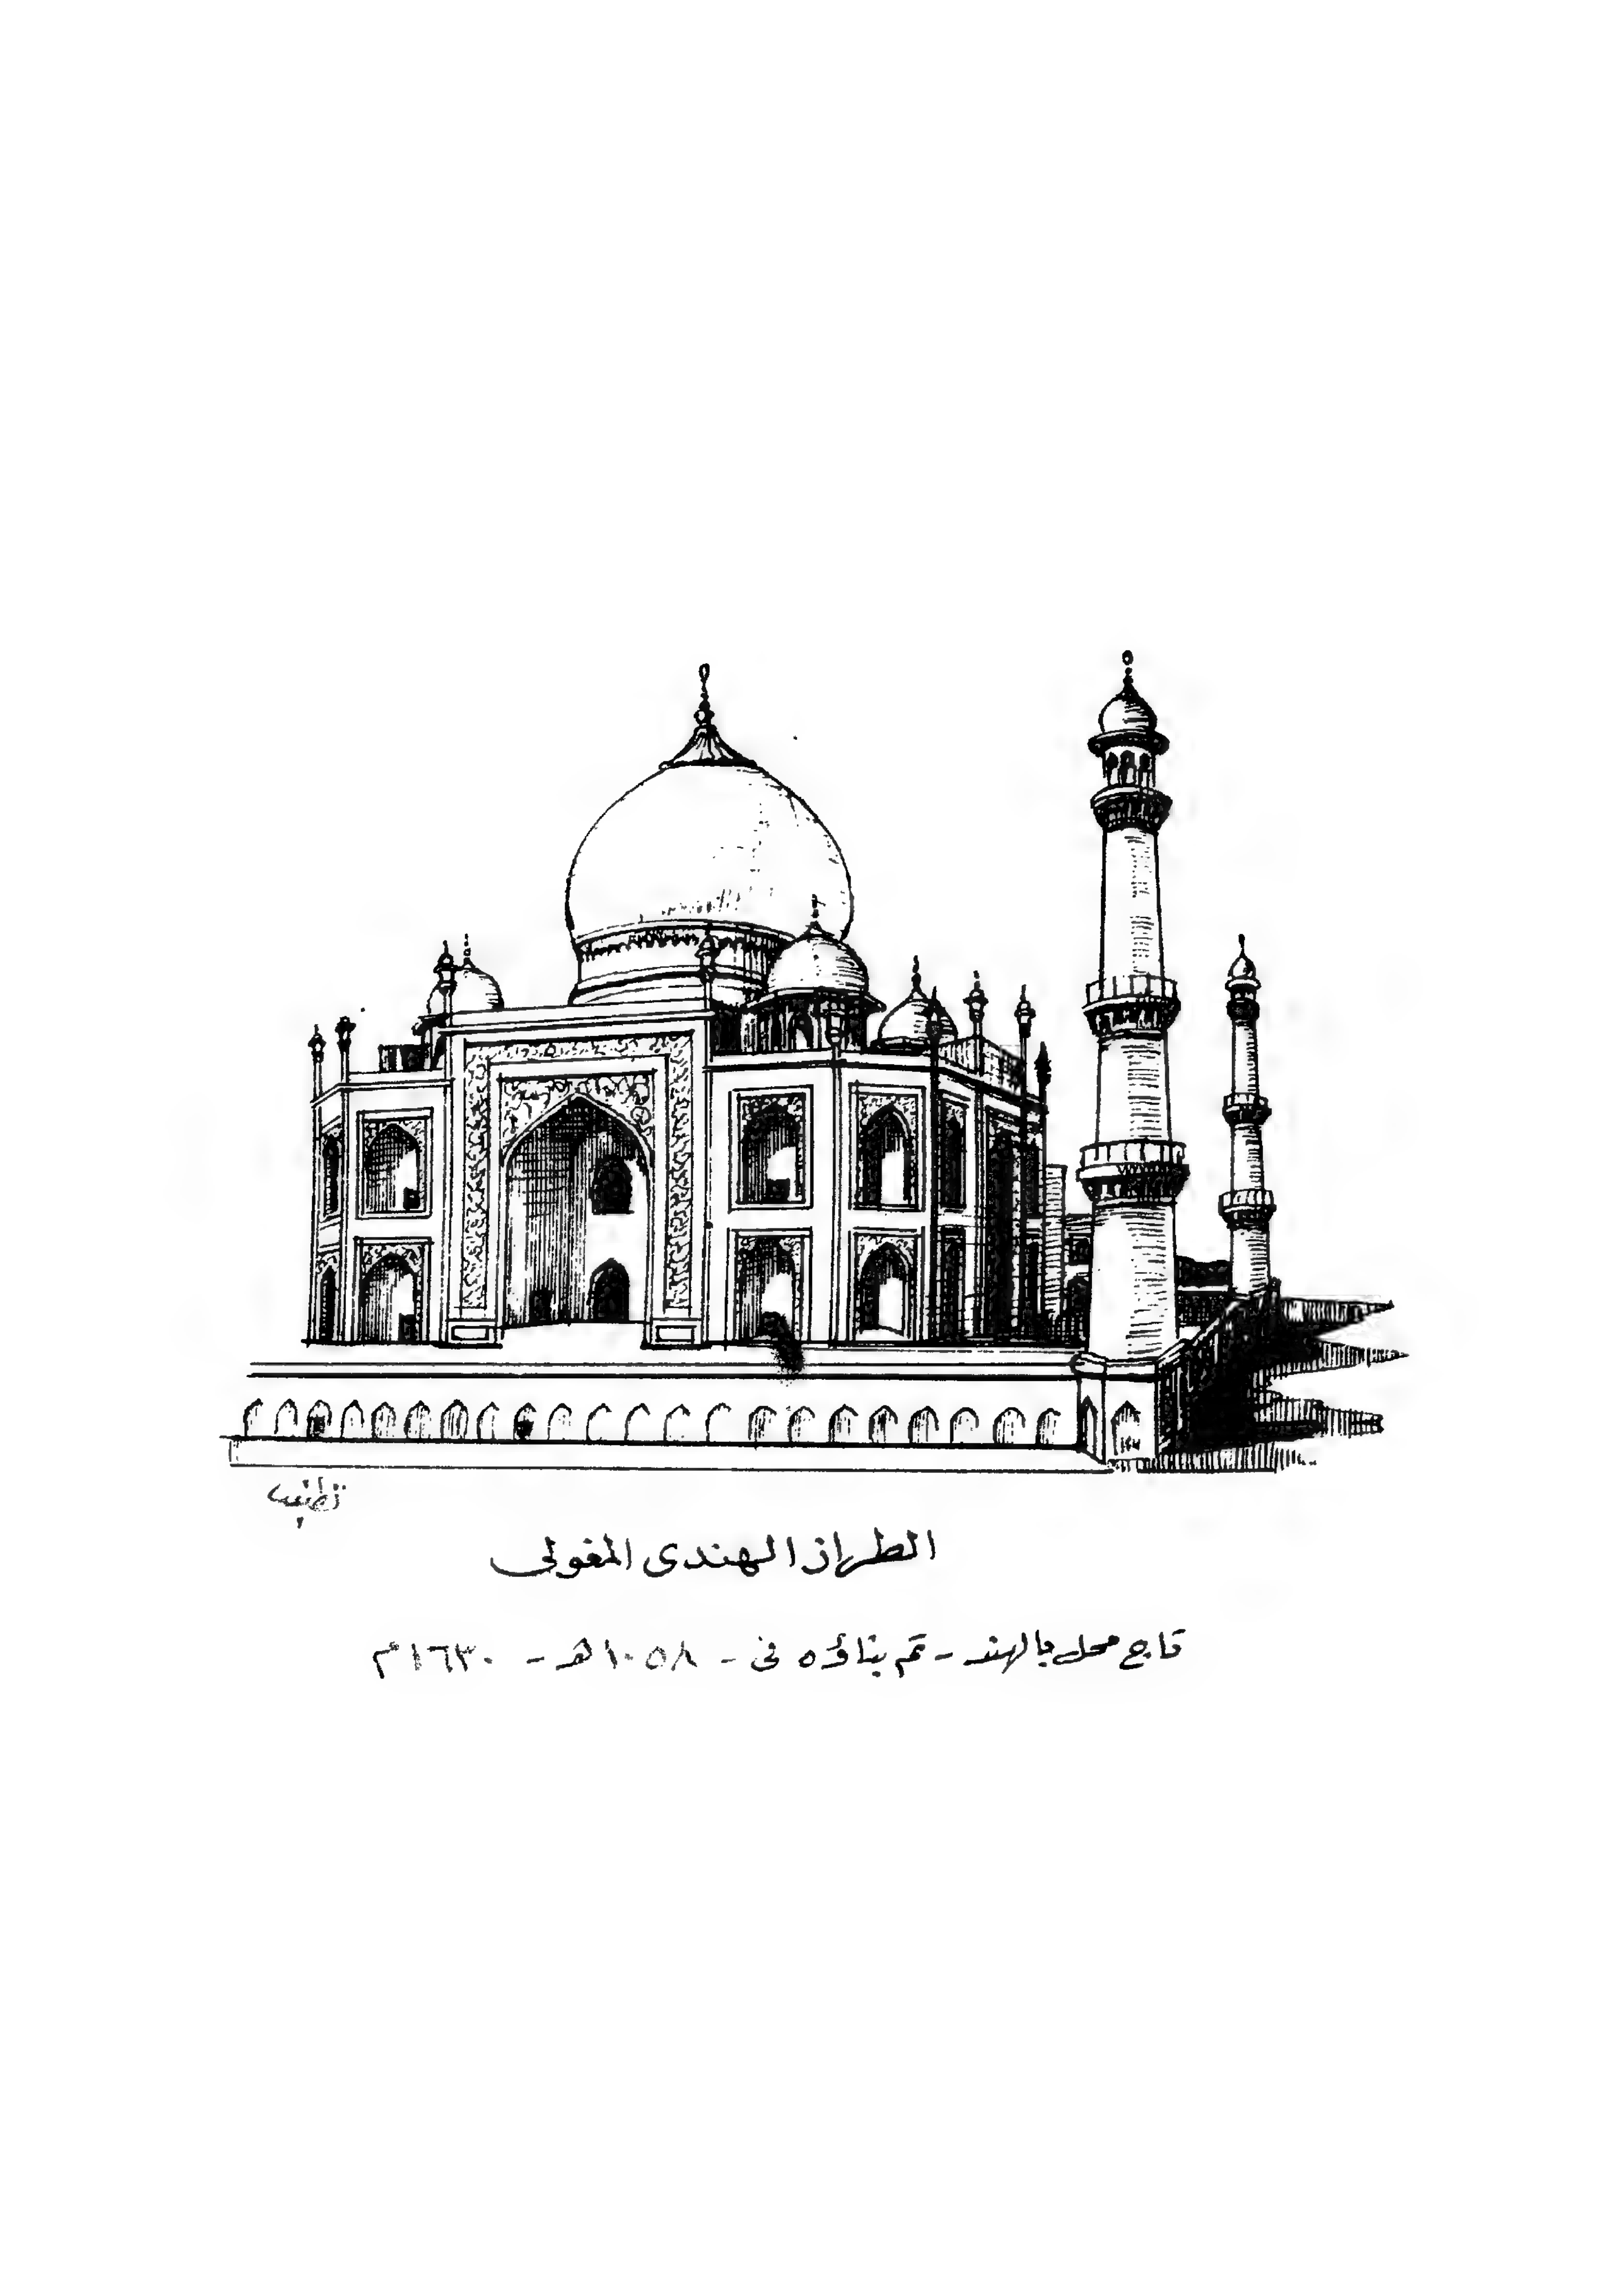 الطراز الهندى المغولى
تاج محل بالهند - تم بناؤه فى - ١٠٥٨هـ - ١٦٣٠م